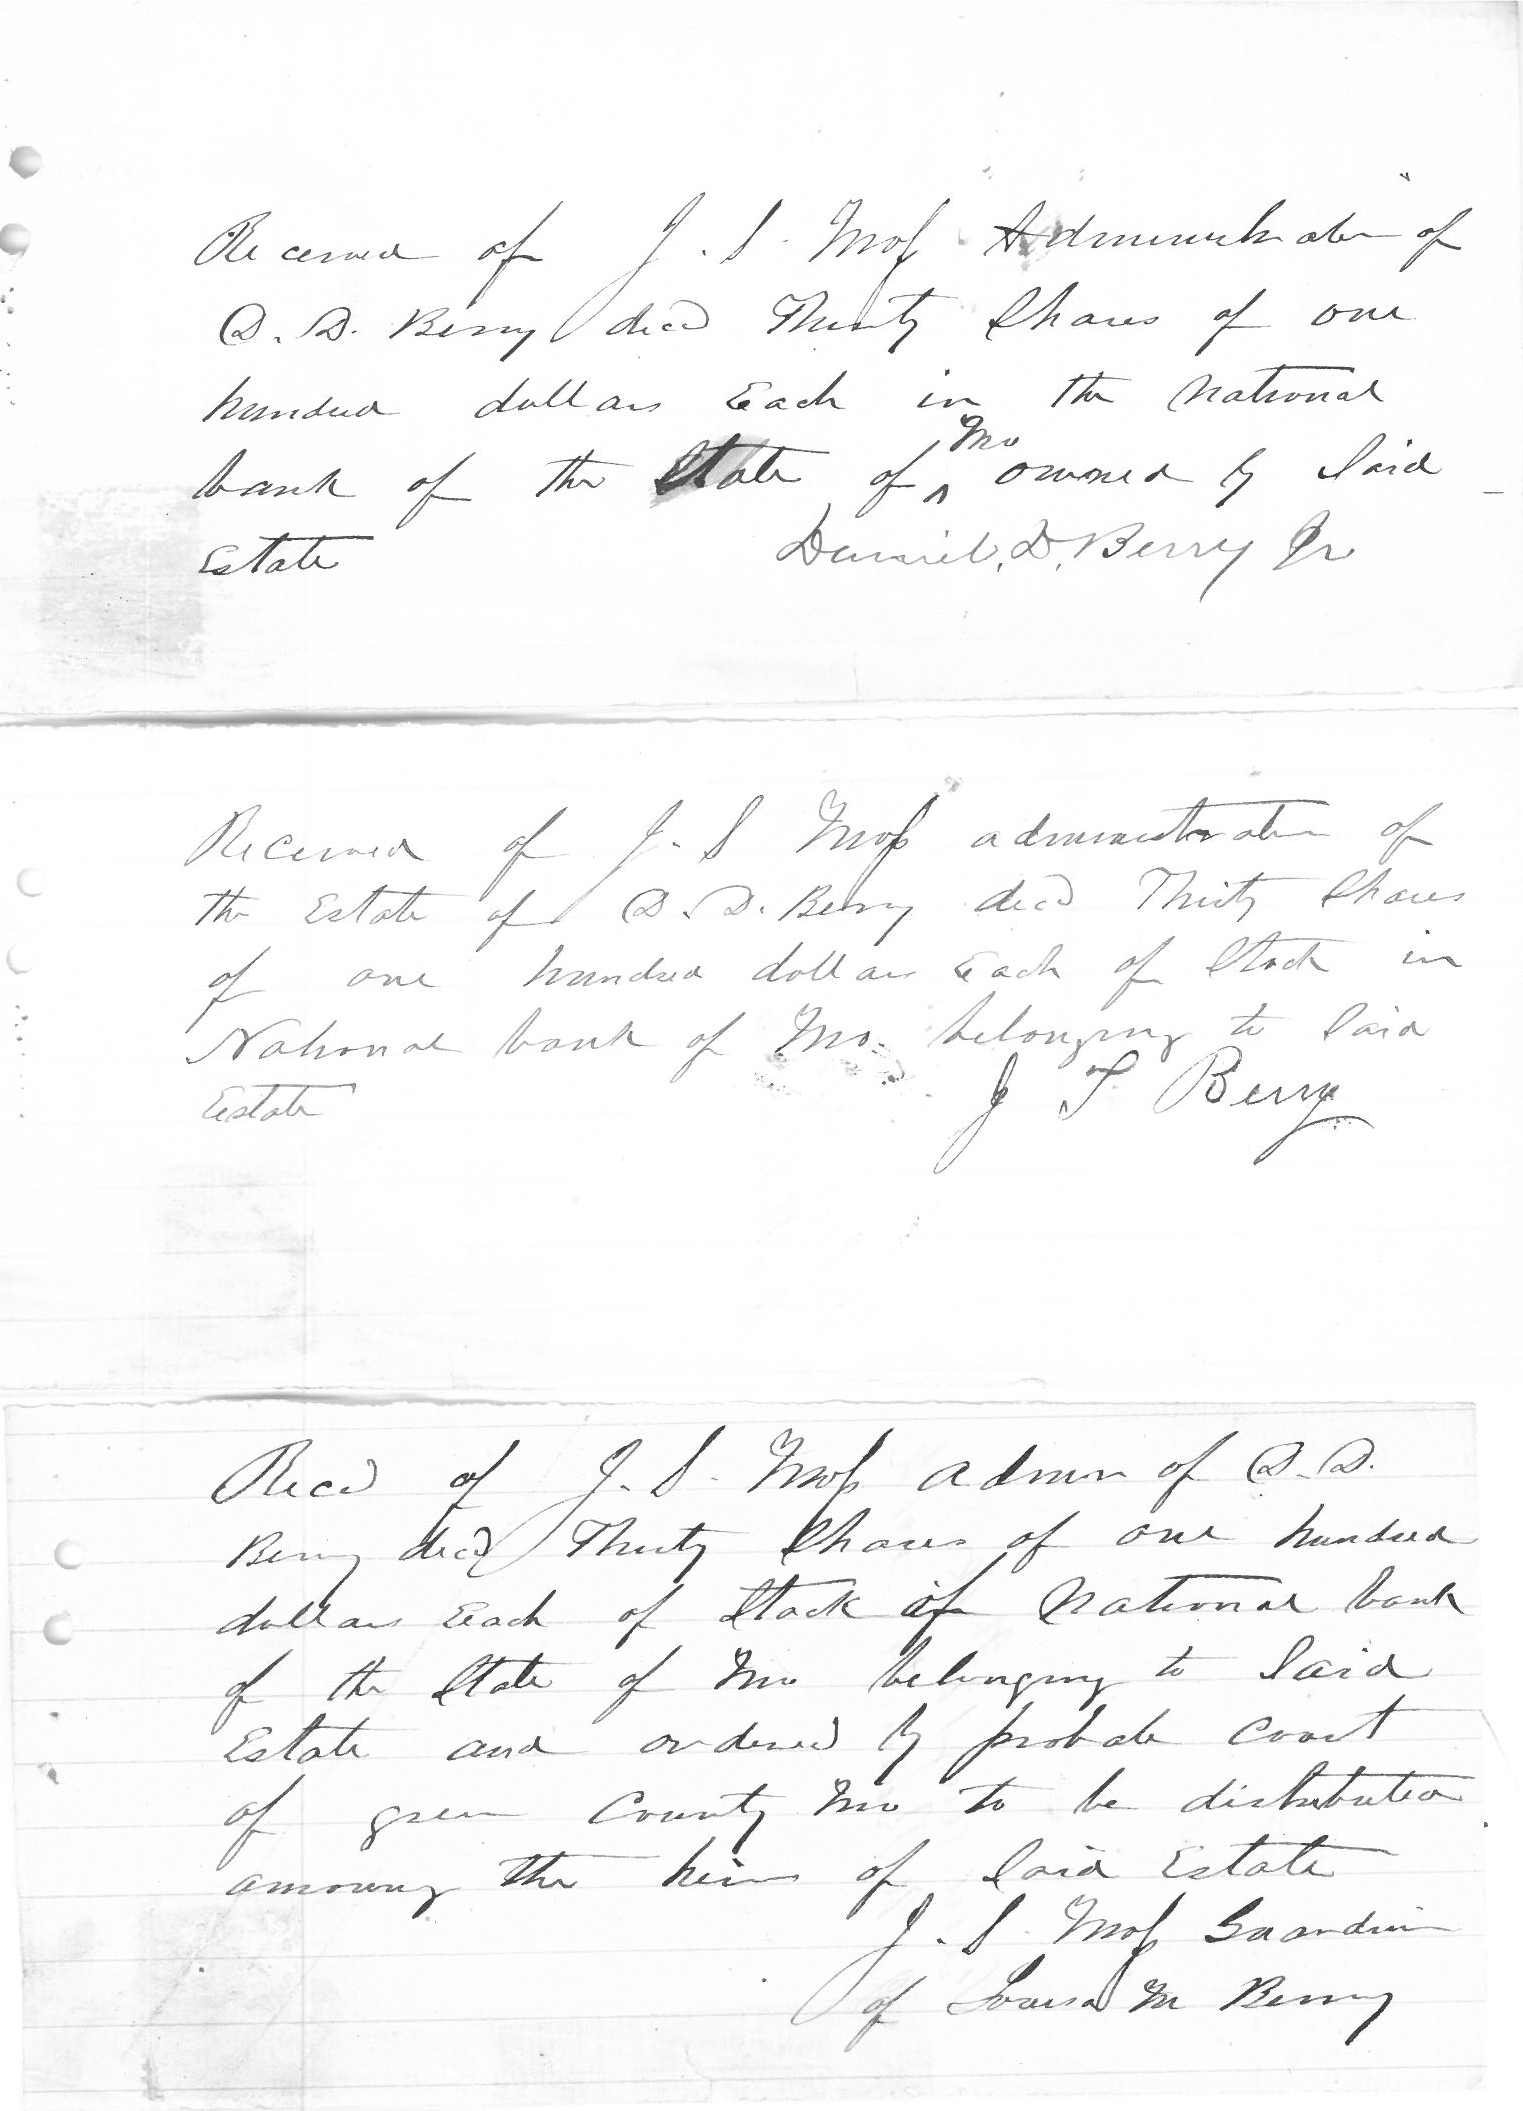 Received of J. S. Moss Administrator of
D. D. Berry decd Thirty Shares of one
hundred dollars Each in the National
bank of the State of ^Mo owned by Said
Estate Daniel. D. Berry Jr
Received of J. S Moss administrator of
the Estate of D. D. Berry decd Thirty Shares
of one hundred dollars Each of Stock in
National bank of Mo. belonging to Said
Estate J T Berry
Recd of J. S. Moss Admin of D. D.
Berry decd Thirty Shares of one hundred
dollars Each of Stock of National bank
of the State of Mo belonging to Said
Estate and ordered by probate Court
of green County Mo to be distributed
amoung the heirs of Said Estate
J. S. Moss Guardian
of Louisa M Berry